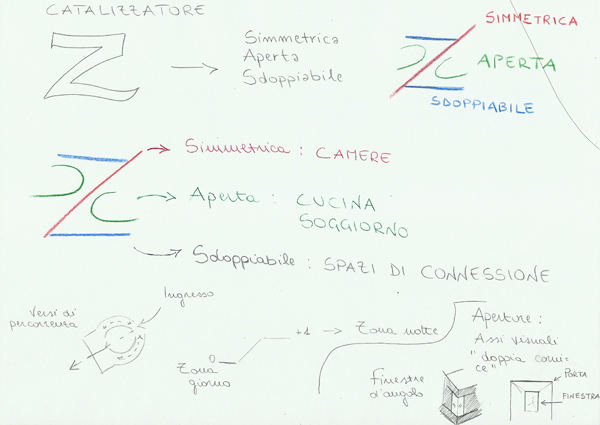 CATALIZZATORE
Z
Simmetrica
Aperta
Sdoppiabile
SIMMETRICA
APERTA
SDOPPIABILE
Simmetrica : CAMERE
Aperta : CUCINA
SOGGIORNO
Sdoppiabile : SPAZI DI CONNESSIONE
Versi di
percorrenza
Ingresso
0
Zona
giorno
+1 → Zona notte
Finestre
d'angolo
Aperture :
Assi visuali
"doppia corni-
ce"
PORTA
FINESTRA